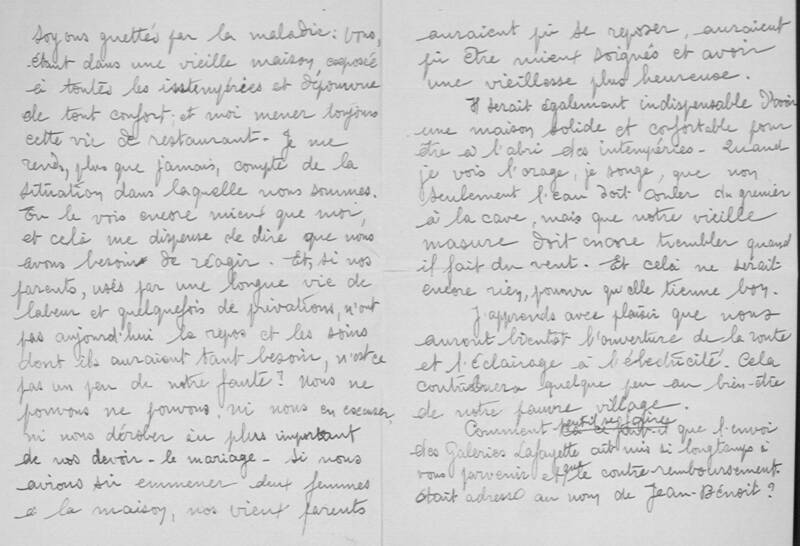 soyons guettés par la maladie: vous,
étant dans une vieille maison exposée
à toutes les isstempérées et dépourvue
de tout confort; et moi mener toujours
cette vie de restaurant - Je me
rends, plus que jamais, compte de la
situation dans laquelle nous sommes.
Tu le vois encore mieux que moi,
et celà me dispense de dire que nous
avons besoin de réagir. Et, si nos
parents, usés par une longue vie de
labeur et quelquefois de privations, n'ont
pas aujourd'hui le repos et les soins
dont ils auraient tant besoin, n'est-ce
pas un peu de notre faute? Nous ne
pouvons ne pouvons ni nous en excuser,
ni nous dérober au plus important
de nos devoir - le mariage - Si nous
avions sû emmener deux femmes
à la maison, nos vieux parents
auraient pû se reposer, auraient
pû être mieux soignés et avoir
une vieillesse plus heureuse.
Il serait également indispensable d'avoir
une maison solide et confortable pour
être à l'abri des intempéries - Quand
je vois l'orage, je songe, que non
seulement l'eau doit couler du grenier
à la cave, mais que notre vieille
masure doit encore trembler quand
il fait du vent. Et celà ne serait
encore rien, pourvu qu'elle tienne bon.
J'apprends avec plaisir que nous
auront bientôt l'ouverture de la route
et l'éclairage à l'électricité. Cela
contribuera quelque peu au bien-être
de notre pauvre village.
Comment peut-il se faire que l'envoi
des Galeries Lafayette ait mis si longtemps à
vous parvenir et que le contre-remboursement
était adressé au nom de Jean-Bénoit?